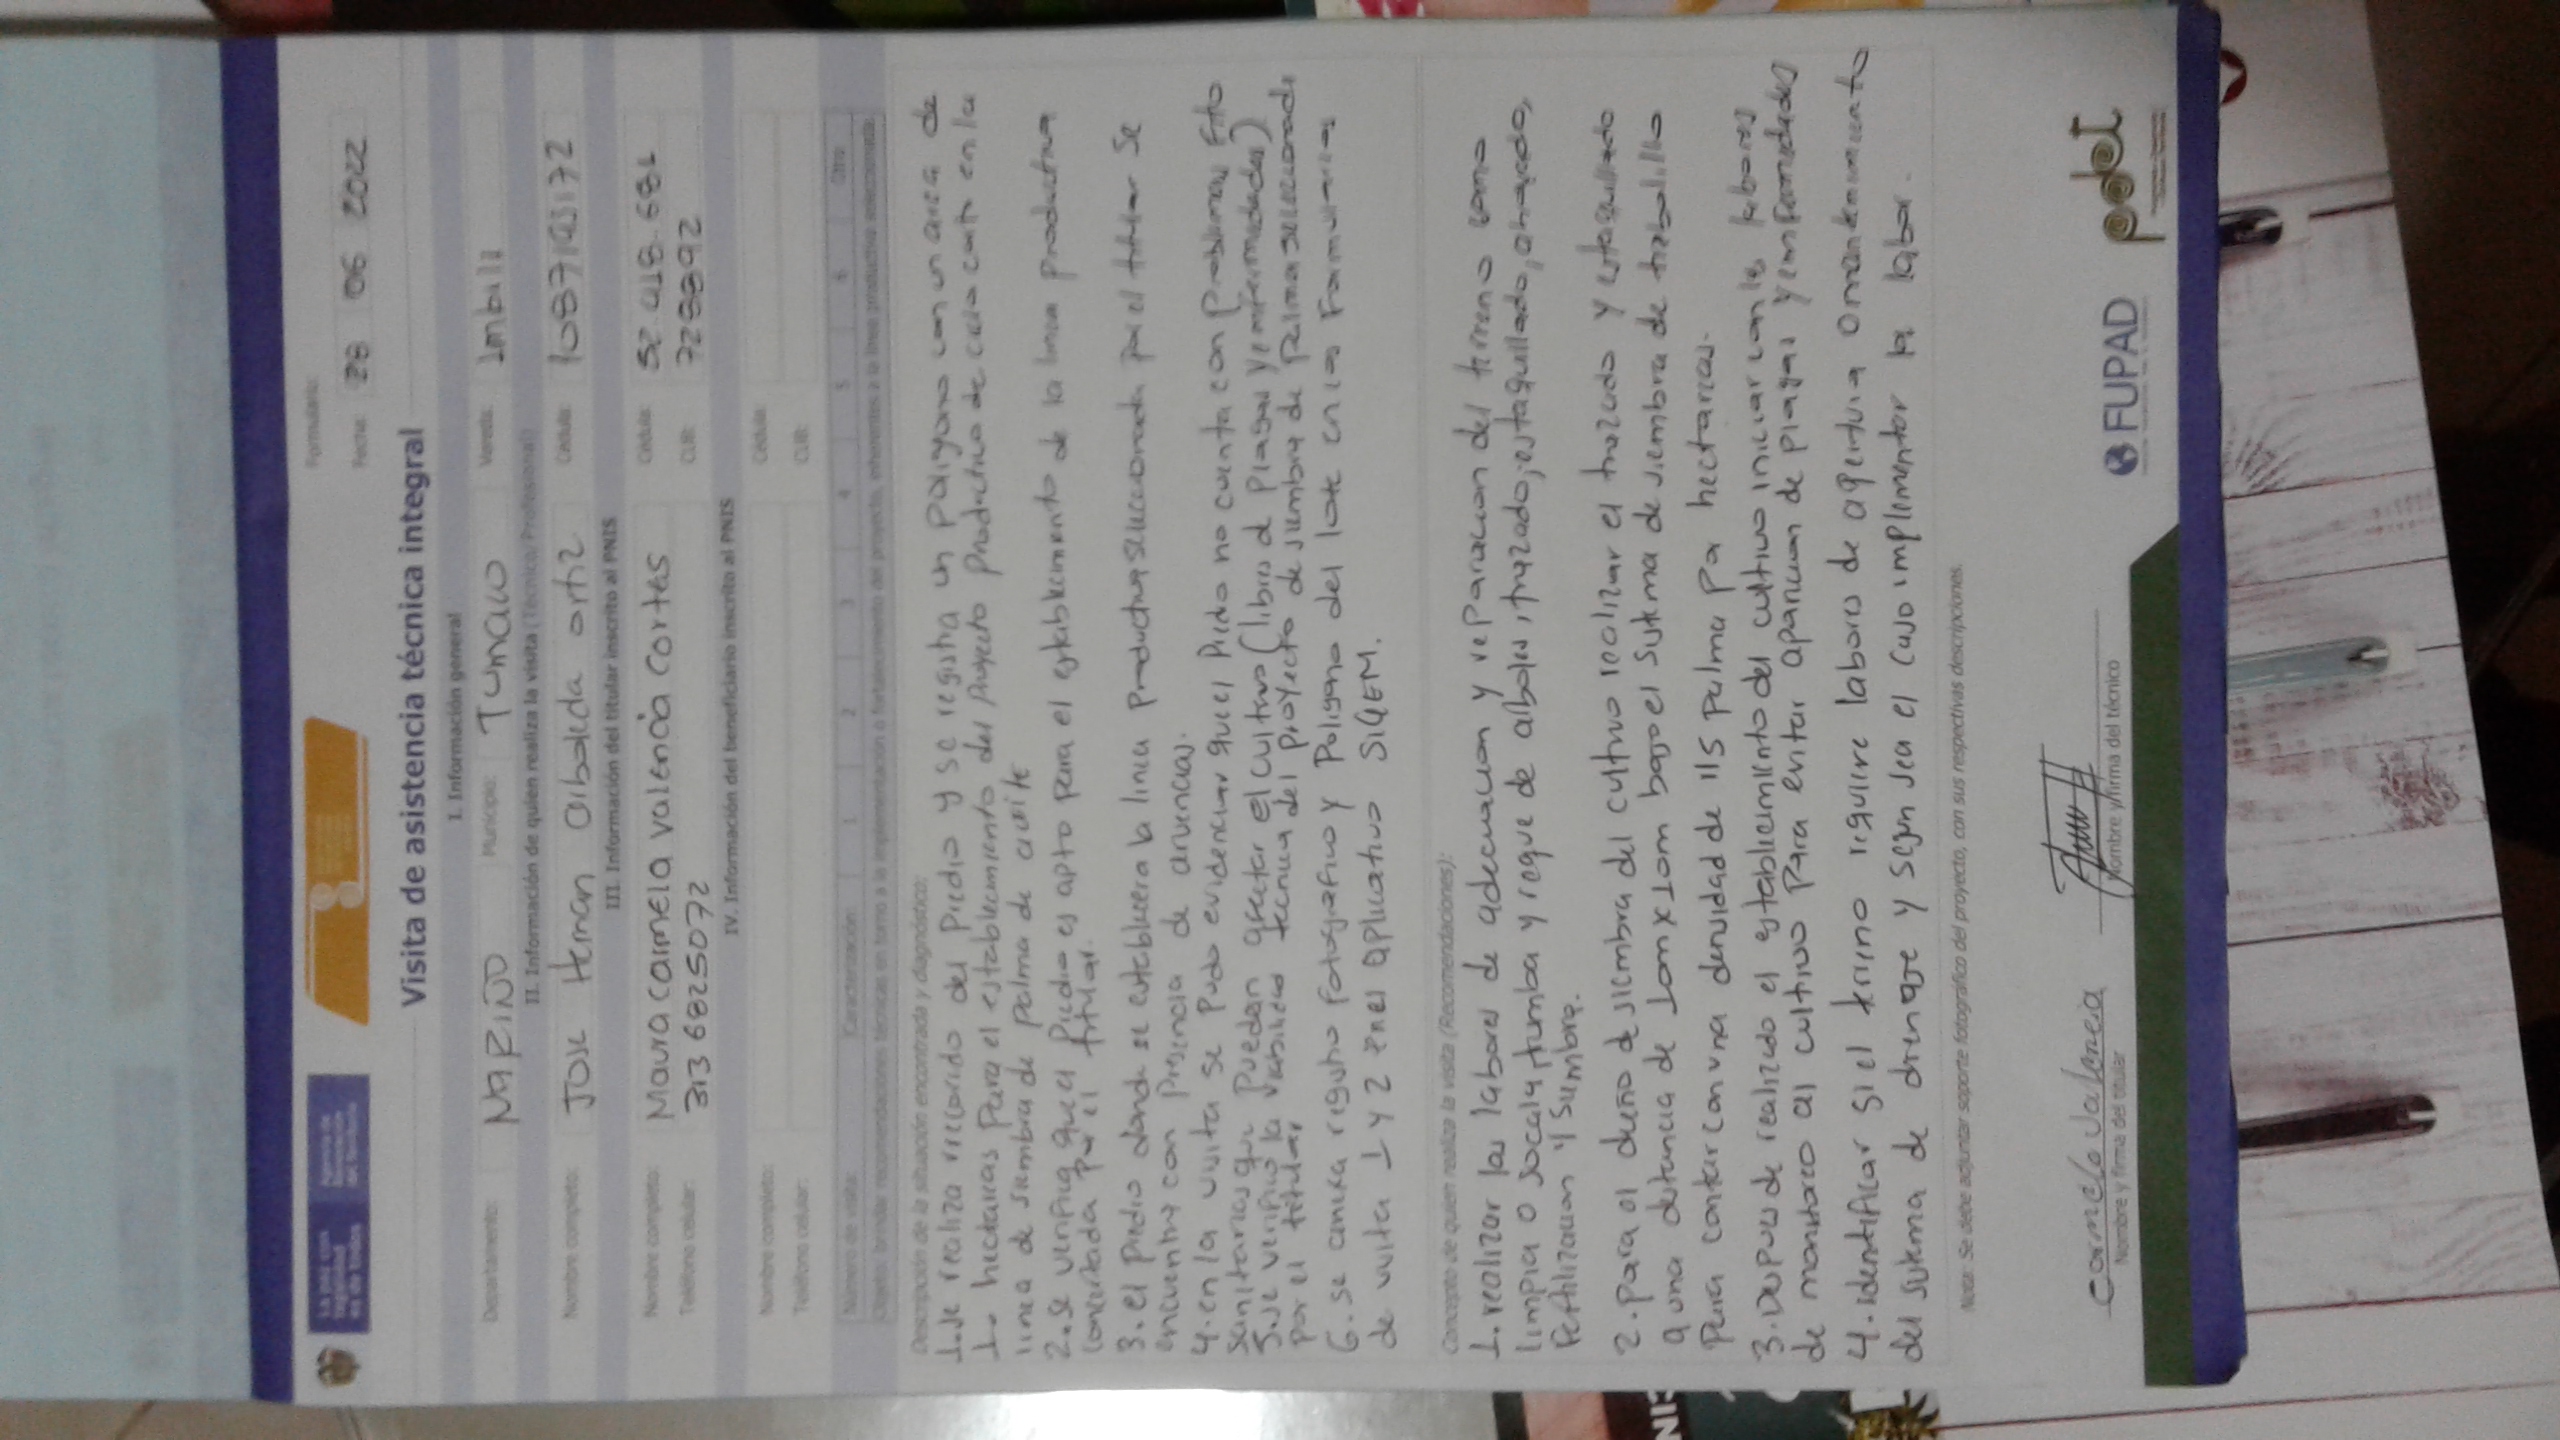 La paz con legalidad es de todos
Agencia de Renovación del Territorio
Formulario:
Fecha: 28 06 2022
Visita de asistencia técnica integral
I. Información general
Departamento: NARIÑO Municipio: Tumaco Vereda: Imbili
II. Información de quien realiza la visita (Técnico/Profesional)
Nombre completo: Jose Hernan Cédula:
III. Información del titular inscrito al PNIS
Nombre completo: Maura Carmela Valencia Cortes Cédula:
Teléfono celular: 3136825072 CUB: 7288892
IV. Información del beneficiario inscrito al PNIS
Nombre completo: Cédula:
Teléfono celular: CUB:
Número de visita: Caracterización: 1 2 3 4 5 6 Otro
Objeto: brindar recomendaciones técnicas en torno a la implementación o fortalecimiento del proyecto, referentes a la línea productiva seleccionada.
Descripción de la situación encontrada y diagnóstico:
1. se realiza recorrido del Predio y se registra un Poligono con un area de
hectarias Para el establecimiento del Proyecto Productivo de ciclo corto en la
linea de siembra de palma de aceite
2. se verifica que el Predio es apto para el establecimiento de la linea productiva
concertada por el titular.
3. el Predio donde se establecera la linea Productiva seleccionada por el titular se
encuentra con Presencia de arvences.
4. en la visita se pudo evidenciar que el Predio no cuenta con problemas Fito
sanitarios que Puedan afectar el cultivo (libres de Plagas y enfermedades)
5. se verifico la viabilidad tecnica del proyecto de siembra de Palma seleccionada
por el titular
6. se registro fotografico y Poligono del lote en los Formularios
de visita 1 y 2 en el aplicativo SIGEM.
Concepto de quien realiza la visita (Recomendaciones):
1. realizar las labores de adecuacion y reparacion del terreno como
limpia o socala, tumba y reque de arboles, trazado, estaquillado, ahoyado,
Fertilizacion y siembra.
2. Para el diseño de siembra del cultivo realizar el trazado y estaquillado
a una distancia de 10m x 10m bajo el sistema de siembra de tresbolillo
Para contar con una densidad de 115 palma por hectareas.
3. Despues de realizado el establecimiento del cultivo iniciar con las labores
de monitoreo al cultivo Para evitar aparicion de plagas y enfermedades
4. identificar si el terreno requiere labores de apertura o mantenimiento
del sistema de drenaje y segun sea el caso implementar la labor.
Nota: Se debe adjuntar soporte fotográfico del proyecto, con sus respectivas descripciones.
Carmela Valencia
Nombre y firma del titular
Nombre y/firma del técnico
FUPAD
pdet